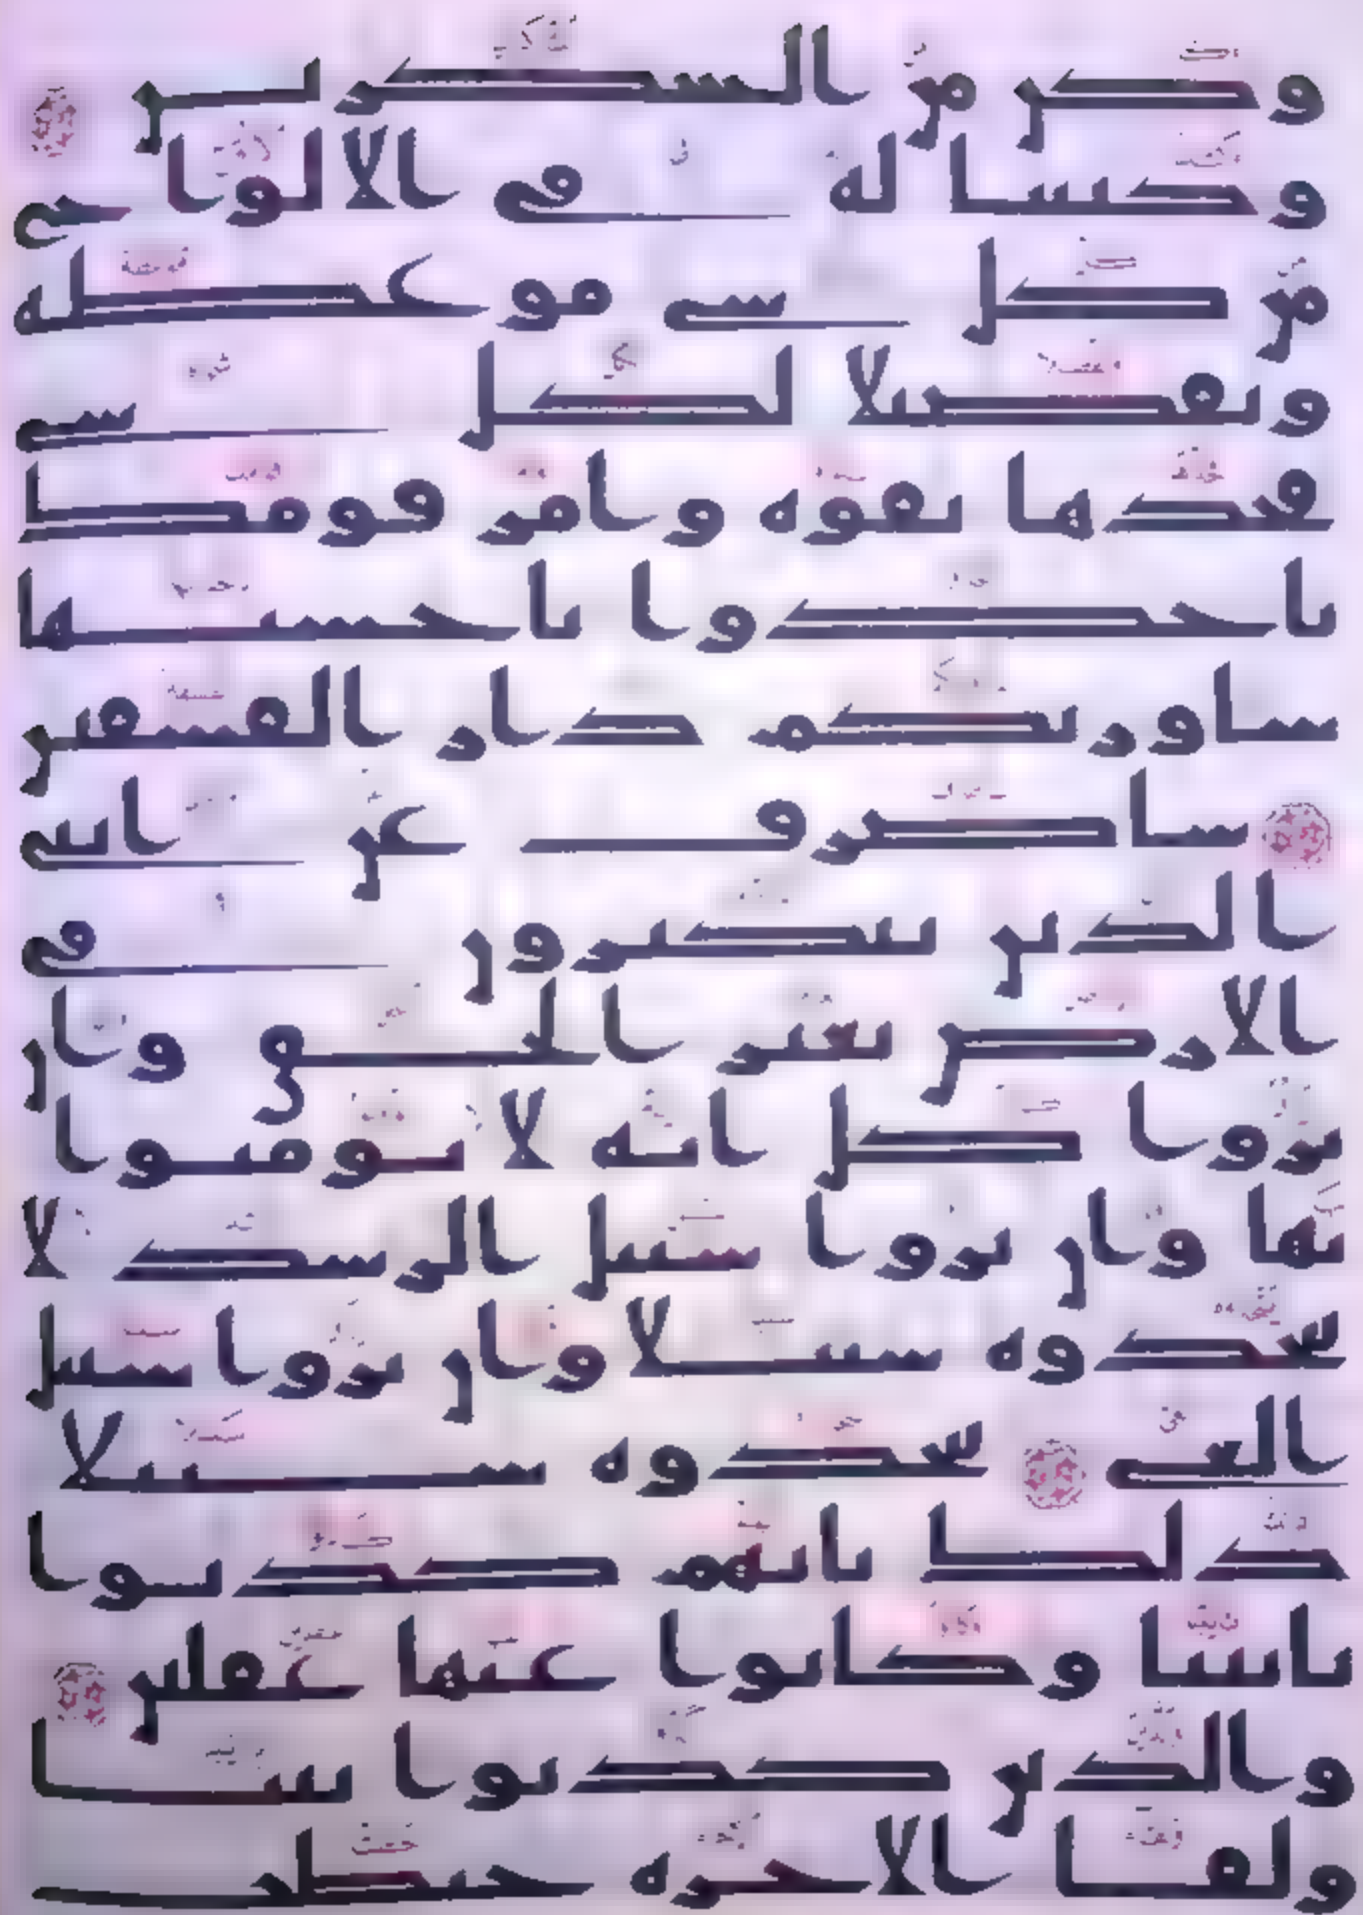 وكن من الشكرين
وكتبنا له في الالواح
من كل شي موعظه
وتفصيلا لكل شي
فخذها بقوه وامر قومك
ياخذوا باحسنها
ساوريكم دار الفسقين
ساصرف عن ايتي
الذين يتكبرون في
الارض بغير الحق وان
يروا كل ايه لا يومنوا
بها وان يروا سبيل الرشد لا
يتخذوه سبيلا وان يروا سبيل
الغي يتخذوه سبيلا
ذلك بانهم كذبوا
بايتنا وكانوا عنها غفلين
والذين كذبوا بايتنا
ولقا الاخره حبطت